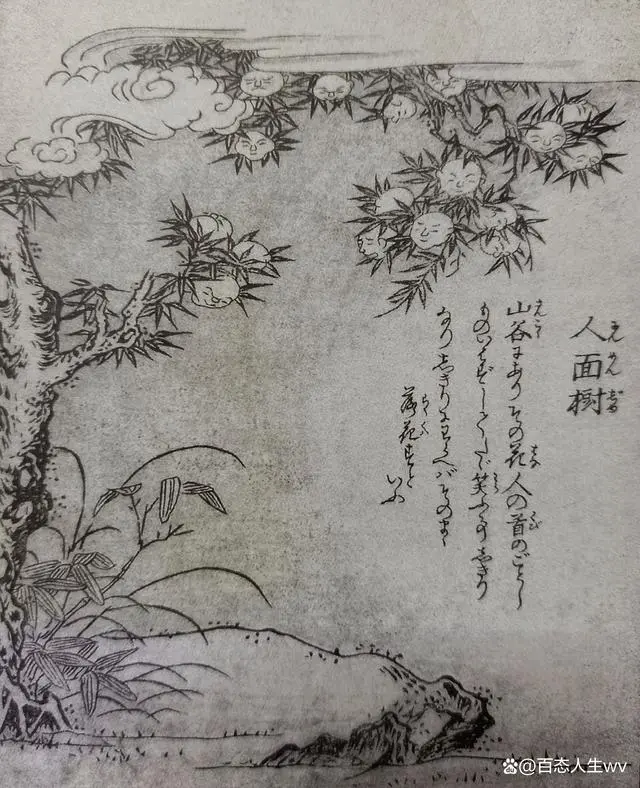 人面樹
山谷にありその花人の首のごとし
ものいはずしてたゞ笑ふ事しきり
なりしきりにわらへバそのまゝ
落花すといふ
@百态人生wv